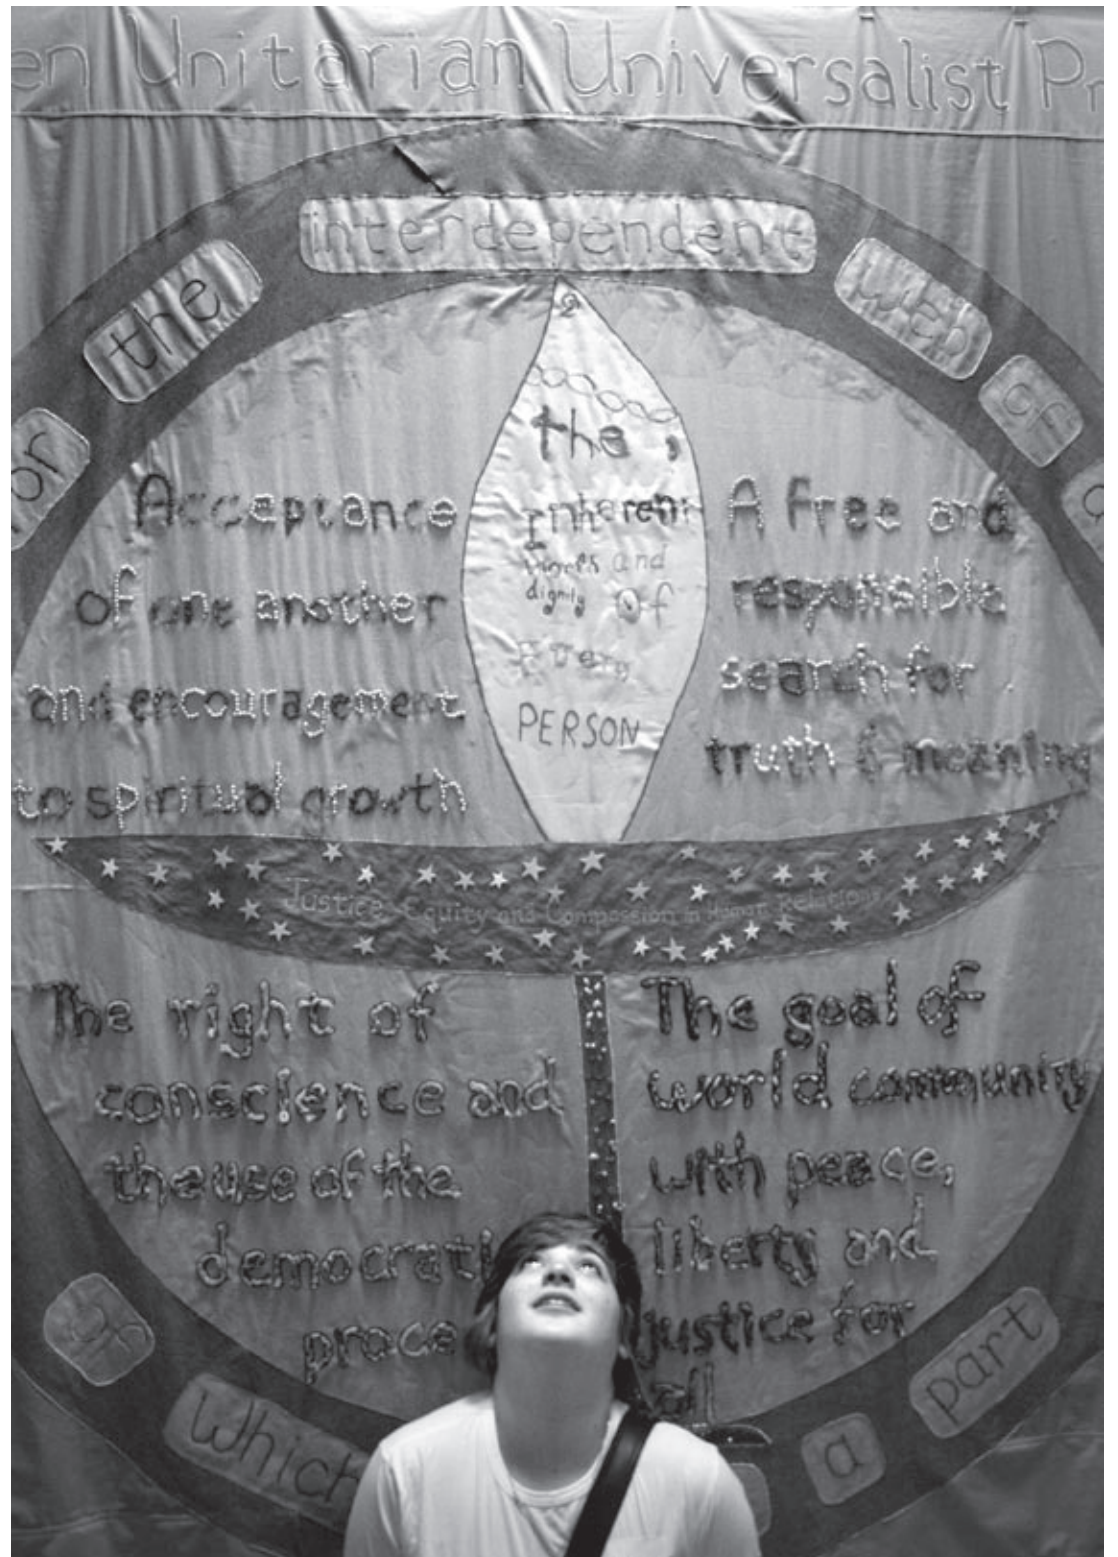 en Unitarian Universalist Pr
or the interdependent web of
Acceptance
of one another
and encouragement
to spiritual growth
the
Inherent
and
dignity of
Every
PERSON
A free and
responsible
search for
truth & meaning
Justice Equity and Compassion in Human Relations
The right of
conscience and
the use of the
democrati
proce
The goal of
world community
with peace,
liberty and
justice for
all
of which a part